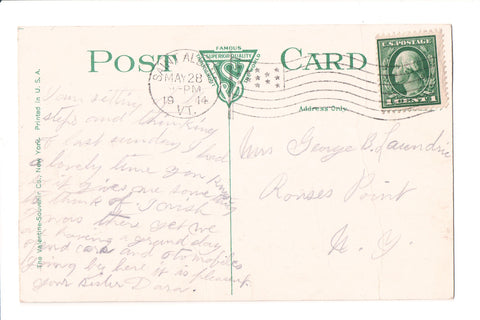 POST CARD
FAMOUS
SUPERIOR QUALITY
ST. ALBANS
MAY 28
PM
1914
VT.
U.S. POSTAGE
1 CENT 1
Address Only.
The Valentine-Souvenir Co., New York. Printed in U. S. A.
I am sitting
steps and thinking
of last sunday I had
a lovely time you know
for it gives me something
to think of I wish
I was there yet we
are having a grand day
and cars and otomobiles
going by here it is pleasure
your sister Dora.
Mrs George B. Laundrie
Rouses Point
N. Y.